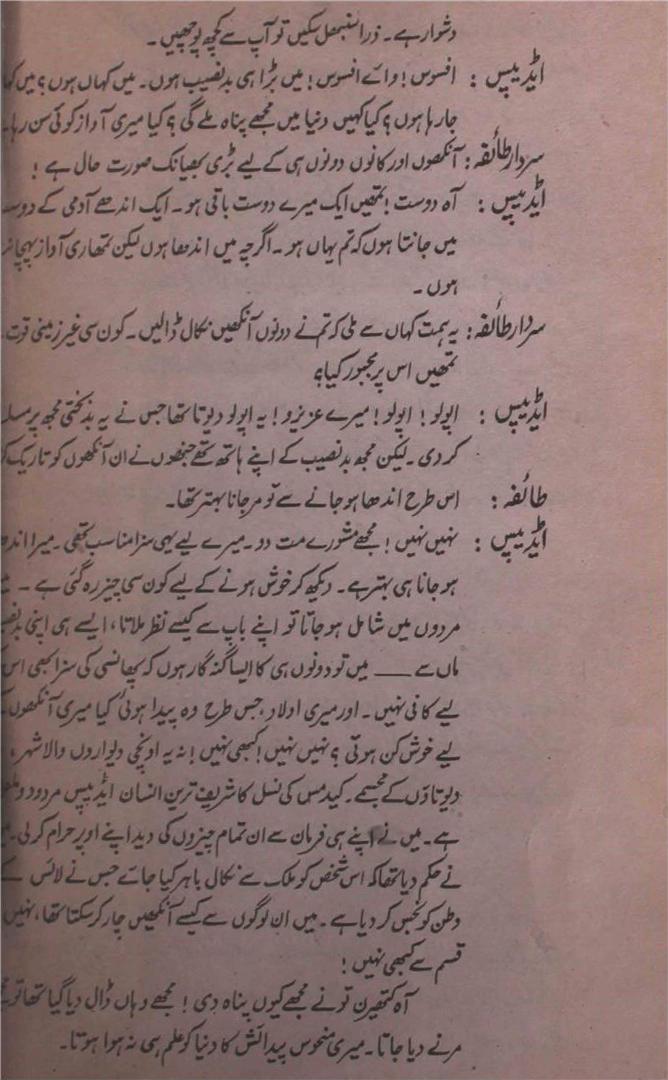 دشوار ہے۔ ذرا سنبھل سکیں تو آپ سے کچھ پوچھیں۔
ایڈیپس : افسوس! وائے افسوس! میں بڑا ہی بدنصیب ہوں۔ میں کہاں ہوں؟ میں کہا
جا رہا ہوں؟ کیا کہیں دنیا میں مجھے پناہ ملے گی؟ کیا میری آواز کوئی سن رہا
سردار طائفہ: آنکھوں اور کانوں دونوں ہی کے لیے بڑی بھیانک صورت حال ہے!
ایڈیپس : آہ دوست! تمھیں ایک میرے دوست باقی ہو۔ ایک اندھے آدمی کے دوست
میں جانتا ہوں کہ تم یہاں ہو۔ اگرچہ میں اندھا ہوں لیکن تمھاری آواز پہچانتا
ہوں۔
سردار طائفہ: یہ ہمت کہاں سے ملی کہ تم نے دونوں آنکھیں نکال ڈالیں۔ کون سی غیر زمینی قوت
تمھیں اس پر مجبور کیا؟
ایڈیپس : اپولو! اپولو! میرے عزیزو! یہ اپولو دیوتا تھا جس نے یہ بدبختی مجھ پر مسلط
کر دی۔ لیکن مجھ بدنصیب کے اپنے ہاتھ تھے جنھوں نے ان آنکھوں کو تاریک کر
طائفہ : اس طرح اندھا ہو جانے سے تو مر جانا بہتر تھا۔
ایڈیپس : نہیں نہیں! مجھے مشورے مت دو۔ میرے لیے یہی سزا مناسب تھی۔ میرا اندھا
ہو جانا ہی بہتر ہے۔ دیکھ کر خوش ہونے کے لیے کون سی چیز رہ گئی ہے۔
مردوں میں شامل ہو جاتا تو اپنے باپ سے کیسے نظر ملاتا، ایسے ہی اپنی بدنصیب
ماں سے ـــــ میں تو دونوں ہی کا ایسا گنہ گار ہوں کہ پھانسی کی سزا بھی اس
لیے کافی نہیں۔ اور میری اولاد، جس طرح وہ پیدا ہوئی کیا میری آنکھوں کے
لیے خوش کن ہوتی؟ نہیں نہیں! کبھی نہیں! نہ یہ اونچی دیواروں والا شہر،
دیوتاؤں کے مجسمے۔ کیدمس کی نسل کا شریف ترین انسان ایڈیپس مردود و ملعون
ہے۔ میں نے اپنے ہی فرمان سے ان تمام چیزوں کی دید اپنے اوپر حرام کر لی۔ میں
نے حکم دیا تھا کہ اس شخص کو ملک سے نکال باہر کیا جائے جس نے لائس کے
وطن کو نجس کر دیا ہے۔ میں ان لوگوں سے کیسے آنکھیں چار کر سکتا تھا، نہیں
قسم سے کبھی نہیں!
آہ کتھیرن تو نے مجھے کیوں پناہ دی! مجھے وہاں ڈال دیا گیا تھا تو مجھے
مرنے دیا جاتا۔ میری منحوس پیدائش کا دنیا کو علم ہی نہ ہوا ہوتا۔